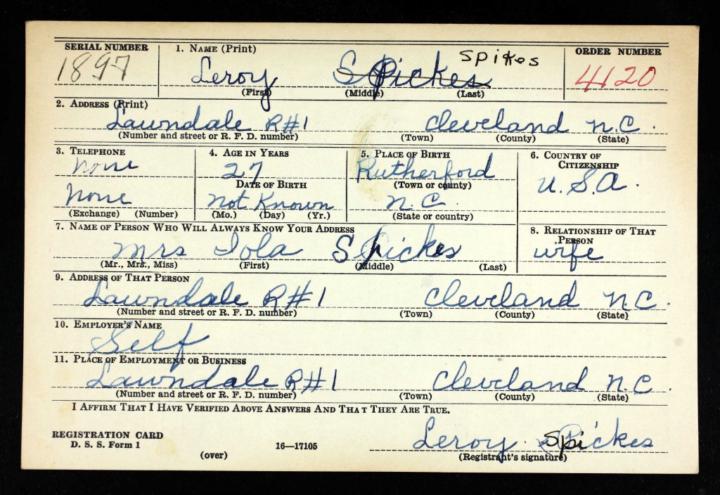 SERIAL NUMBER 1. NAME (Print) Spikes ORDER NUMBER
1897 Leroy Spickes 4120
(First) (Middle) (Last)
2. ADDRESS (Print)
Lawndale R#1 Cleveland N.C.
(Number and street or R. F. D. number) (Town) (County) (State)
3. TELEPHONE 4. AGE IN YEARS 5. PLACE OF BIRTH 6. COUNTRY OF CITIZENSHIP
none 27 Rutherford U.S.A.
DATE OF BIRTH (Town or county)
none not Known N.C.
(Exchange) (Number) (Mo.) (Day) (Yr.) (State or country)
7. NAME OF PERSON WHO WILL ALWAYS KNOW YOUR ADDRESS 8. RELATIONSHIP OF THAT PERSON
Mrs Iola Spickes wife
(Mr., Mrs., Miss) (First) (Middle) (Last)
9. ADDRESS OF THAT PERSON
Lawndale R#1 Cleveland N.C.
(Number and street or R. F. D. number) (Town) (County) (State)
10. EMPLOYER'S NAME
Self
11. PLACE OF EMPLOYMENT OR BUSINESS
Lawndale R#1 Cleveland N.C.
(Number and street or R. F. D. number) (Town) (County) (State)
I AFFIRM THAT I HAVE VERIFIED ABOVE ANSWERS AND THAT THEY ARE TRUE.
REGISTRATION CARD Leroy Spickes
D. S. S. Form 1 (over) 16—17105 (Registrant's signature)